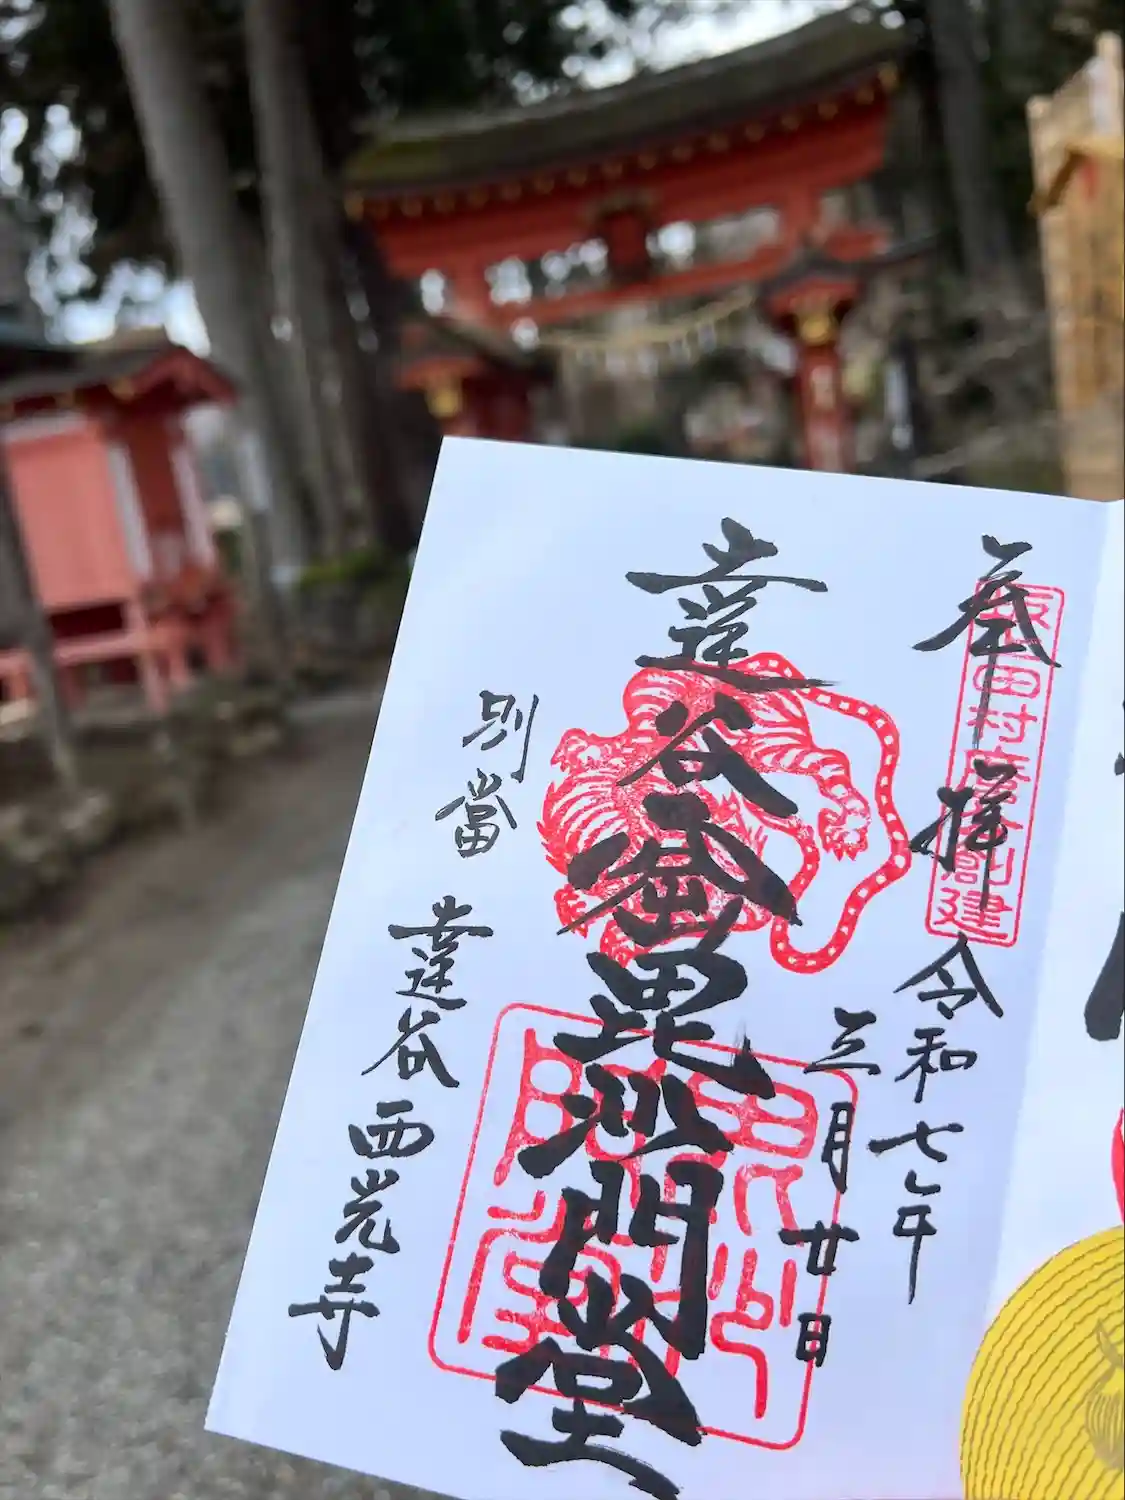 奉拝
坂上田村麿公創建
令和七年
三月廿日
達谷窟毘沙門堂
別當
達谷西光寺